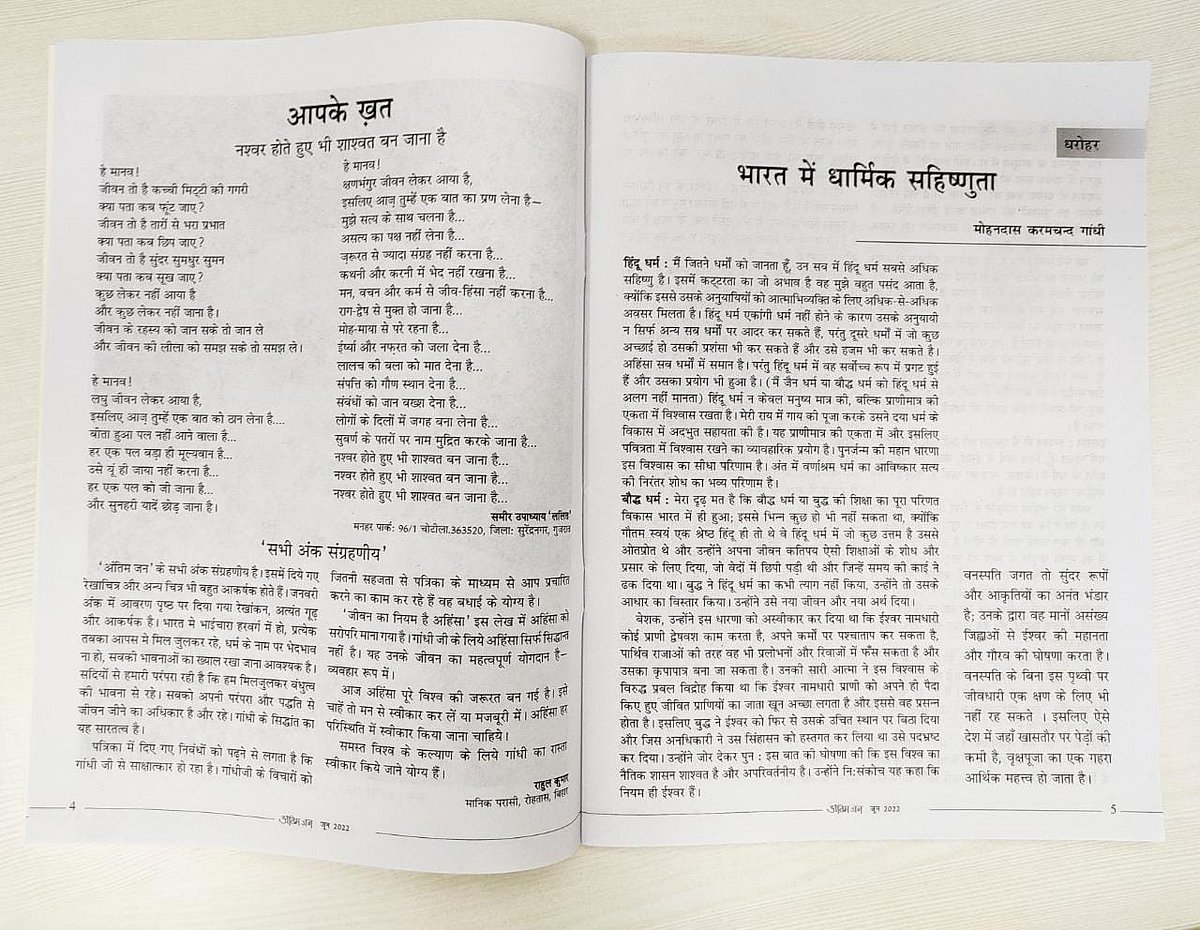 आपके ख़त
नश्वर होते हुए भी शाश्वत बन जाना है
हे मानव!
जीवन तो है कच्ची मिट्टी की गगरी
क्या पता कब फूंट जाए?
जीवन तो है तारों से भरा प्रभात
क्या पता कब छिप जाए?
जीवन तो है सुंदर सुमधुर सुमन
क्या पता कब सूख जाए?
कुछ लेकर नहीं आया है
और कुछ लेकर नहीं जाना है।
जीवन के रहस्य को जान सके तो जान ले
और जीवन की लीला को समझ सके तो समझ ले।
हे मानव!
लघु जीवन लेकर आया है,
इसलिए आज़ तुम्हें एक बात को ठान लेना है....
बीता हुआ पल नहीं आने वाला है...
हर एक पल बड़ा ही मूल्यवान है...
उसे यूं ही जाया नहीं करना है...
हर एक पल को जी जाना है...
और सुनहरी यादें छोड़ जाना है।
हे मानव!
क्षणभंगुर जीवन लेकर आया है,
इसलिए आज़ तुम्हें एक बात का प्रण लेना है–
मुझे सत्य के साथ चलना है...
असत्य का पक्ष नहीं लेना है...
ज़रूरत से ज्यादा संग्रह नहीं करना है...
कथनी और करनी में भेद नहीं रखना है...
मन, वचन और कर्म से जीव-हिंसा नहीं करना है...
राग-द्वेष से मुक्त हो जाना है...
मोह-माया से परे रहना है...
ईर्ष्या और नफ़रत को जला देना है...
लालच की बला को मात देना है...
संपत्ति को गौण स्थान देना है...
संबंधों को जान बख्श देना है...
लोगों के दिलों में जगह बना लेना है...
सुवर्ण के पतरों पर नाम मुद्रित करके जाना है...
नश्वर होते हुए भी शाश्वत बन जाना है...
नश्वर होते हुए भी शाश्वत बन जाना है...
नश्वर होते हुए भी शाश्वत बन जाना है...
समीर उपाध्याय 'ललित'
मनहर पार्क: 96/1 चोटीला.363520, जिला: सुरेंद्रनगर, गुजरात
'सभी अंक संग्रहणीय'
'अंतिम जन' के सभी अंक संग्रहणीय है। इसमें दिये गए
रेखाचित्र और अन्य चित्र भी बहुत आकर्षक होते हैं। जनवरी
अंक में आवरण पृष्ठ पर दिया गया रेखांकन, अत्यंत गूढ़
और आकर्षक है। भारत मे भाईचारा हरवर्ग में हो, प्रत्येक
तबका आपस मे मिल जुलकर रहे, धर्म के नाम पर भेदभाव
ना हो, सबकी भावनाओं का ख्याल रखा जाना आवश्यक है।
सदियों से हमारी परंपरा रही है कि हम मिलजुलकर बंधुत्व
की भावना से रहे। सबको अपनी परंपरा और पद्धति से
जीवन जीने का अधिकार है और रहे। गांधी के सिद्धांत का
यह सारतत्व है।
पत्रिका में दिए गए निबंधों को पढ़ने से लगता है कि
गांधी जी से साक्षात्कार हो रहा है। गांधीजी के विचारों को
जितनी सहजता से पत्रिका के माध्यम से आप प्रचारित
करने का काम कर रहे हैं वह बधाई के योग्य है।
'जीवन का नियम है अहिंसा' इस लेख में अहिंसा को
सरोपरि माना गया है। गांधी जी के लिये अहिंसा सिर्फ सिद्धान्त
नहीं है। यह उनके जीवन का महत्वपूर्ण योगदान है–
व्यवहार रूप में।
आज अहिंसा पूरे विश्व की जरूरत बन गई है। इसे
चाहें तो मन से स्वीकार कर लें या मजबूरी में। अहिंसा हर
परिस्थिति में स्वीकार किया जाना चाहिये।
समस्त विश्व के कल्याण के लिये गांधी का रास्ता
स्वीकार किये जाने योग्य हैं।
राहुल कुमार
मानिक परासी, रोहतास, बिहार
4
अंतिम जन जून 2022
धरोहर
भारत में धार्मिक सहिष्णुता
मोहनदास करमचन्द गांधी
हिंदू धर्म : मैं जितने धर्मों को जानता हूँ, उन सब में हिंदू धर्म सबसे अधिक
सहिष्णु है। इसमें कट्टरता का जो अभाव है वह मुझे बहुत पसंद आता है,
क्योंकि इससे उसके अनुयायियों को आत्माभिव्यक्ति के लिए अधिक-से-अधिक
अवसर मिलता है। हिंदू धर्म एकांगी धर्म नहीं होने के कारण उसके अनुयायी
न सिर्फ अन्य सब धर्मों पर आदर कर सकते हैं, परंतु दूसरे धर्मों में जो कुछ
अच्छाई हो उसकी प्रशंसा भी कर सकते हैं और उसे हजम भी कर सकते है।
अहिंसा सब धर्मों में समान है। परंतु हिंदू धर्म में वह सर्वोच्च रूप में प्रगट हुई
हैं और उसका प्रयोग भी हुआ है। (मैं जैन धर्म या बौद्ध धर्म को हिंदू धर्म से
अलग नहीं मानता) हिंदू धर्म न केवल मनुष्य मात्र की, बल्कि प्राणीमात्र की
एकता में विश्वास रखता है। मेरी राय में गाय की पूजा करके उसने दया धर्म के
विकास में अदभुत सहायता की है। यह प्राणीमात्र की एकता में और इसलिए
पवित्रता में विश्वास रखने का व्यावहारिक प्रयोग है। पुनर्जन्म की महान धारणा
इस विश्वास का सीधा परिणाम है। अंत में वर्णाश्रम धर्म का आविष्कार सत्य
की निरंतर शोध का भव्य परिणाम है।
बौद्ध धर्म : मेरा दृढ़ मत है कि बौद्ध धर्म या बुद्ध की शिक्षा का पूरा परिणत
विकास भारत में ही हुआ; इससे भिन्न कुछ हो भी नहीं सकता था, क्योंकि
गौतम स्वयं एक श्रेष्ठ हिंदू ही तो थे वे हिंदू धर्म में जो कुछ उत्तम है उससे
ओतप्रोत थे और उन्होंने अपना जीवन कतिपय ऐसी शिक्षाओं के शोध और
प्रसार के लिए दिया, जो वेदों में छिपी पड़ी थी और जिन्हें समय की काई ने
ढक दिया था। बुद्ध ने हिंदू धर्म का कभी त्याग नहीं किया, उन्होंने तो उसके
आधार का विस्तार किया। उन्होंने उसे नया जीवन और नया अर्थ दिया।
बेशक, उन्होंने इस धारणा को अस्वीकार कर दिया था कि ईश्वर नामधारी
कोई प्राणी द्वेषवश काम करता है, अपने कर्मों पर पश्चाताप कर सकता है,
पार्थिव राजाओं की तरह वह भी प्रलोभनों और रिवाजों में फँस सकता है और
उसका कृपापात्र बना जा सकता है। उनकी सारी आत्मा ने इस विश्वास के
विरुद्ध प्रबल विद्रोह किया था कि ईश्वर नामधारी प्राणी को अपने ही पैदा
किए हुए जीवित प्राणियों का जाता खून अच्छा लगता है और इससे वह प्रसन्न
होता है। इसलिए बुद्ध ने ईश्वर को फिर से उसके उचित स्थान पर बिठा दिया
और जिस अनधिकारी ने उस सिंहासन को हस्तगत कर लिया था उसे पदभ्रष्ट
कर दिया। उन्होंने जोर देकर पुन : इस बात की घोषणा की कि इस विश्व का
नैतिक शासन शाश्वत है और अपरिवर्तनीय है। उन्होंने नि:संकोच यह कहा कि
नियम ही ईश्वर हैं।
वनस्पति जगत तो सुंदर रूपों
और आकृतियों का अनंत भंडार
है; उनके द्वारा वह मानों असंख्य
जिह्वाओं से ईश्वर की महानता
और गौरव की घोषणा करता है।
वनस्पति के बिना इस पृथ्वी पर
जीवधारी एक क्षण के लिए भी
नहीं रह सकते । इसलिए ऐसे
देश में जहाँ खासतौर पर पेड़ों की
कमी है, वृक्षपूजा का एक गहरा
आर्थिक महत्त्व हो जाता है।
अंतिम जन जून 2022
5